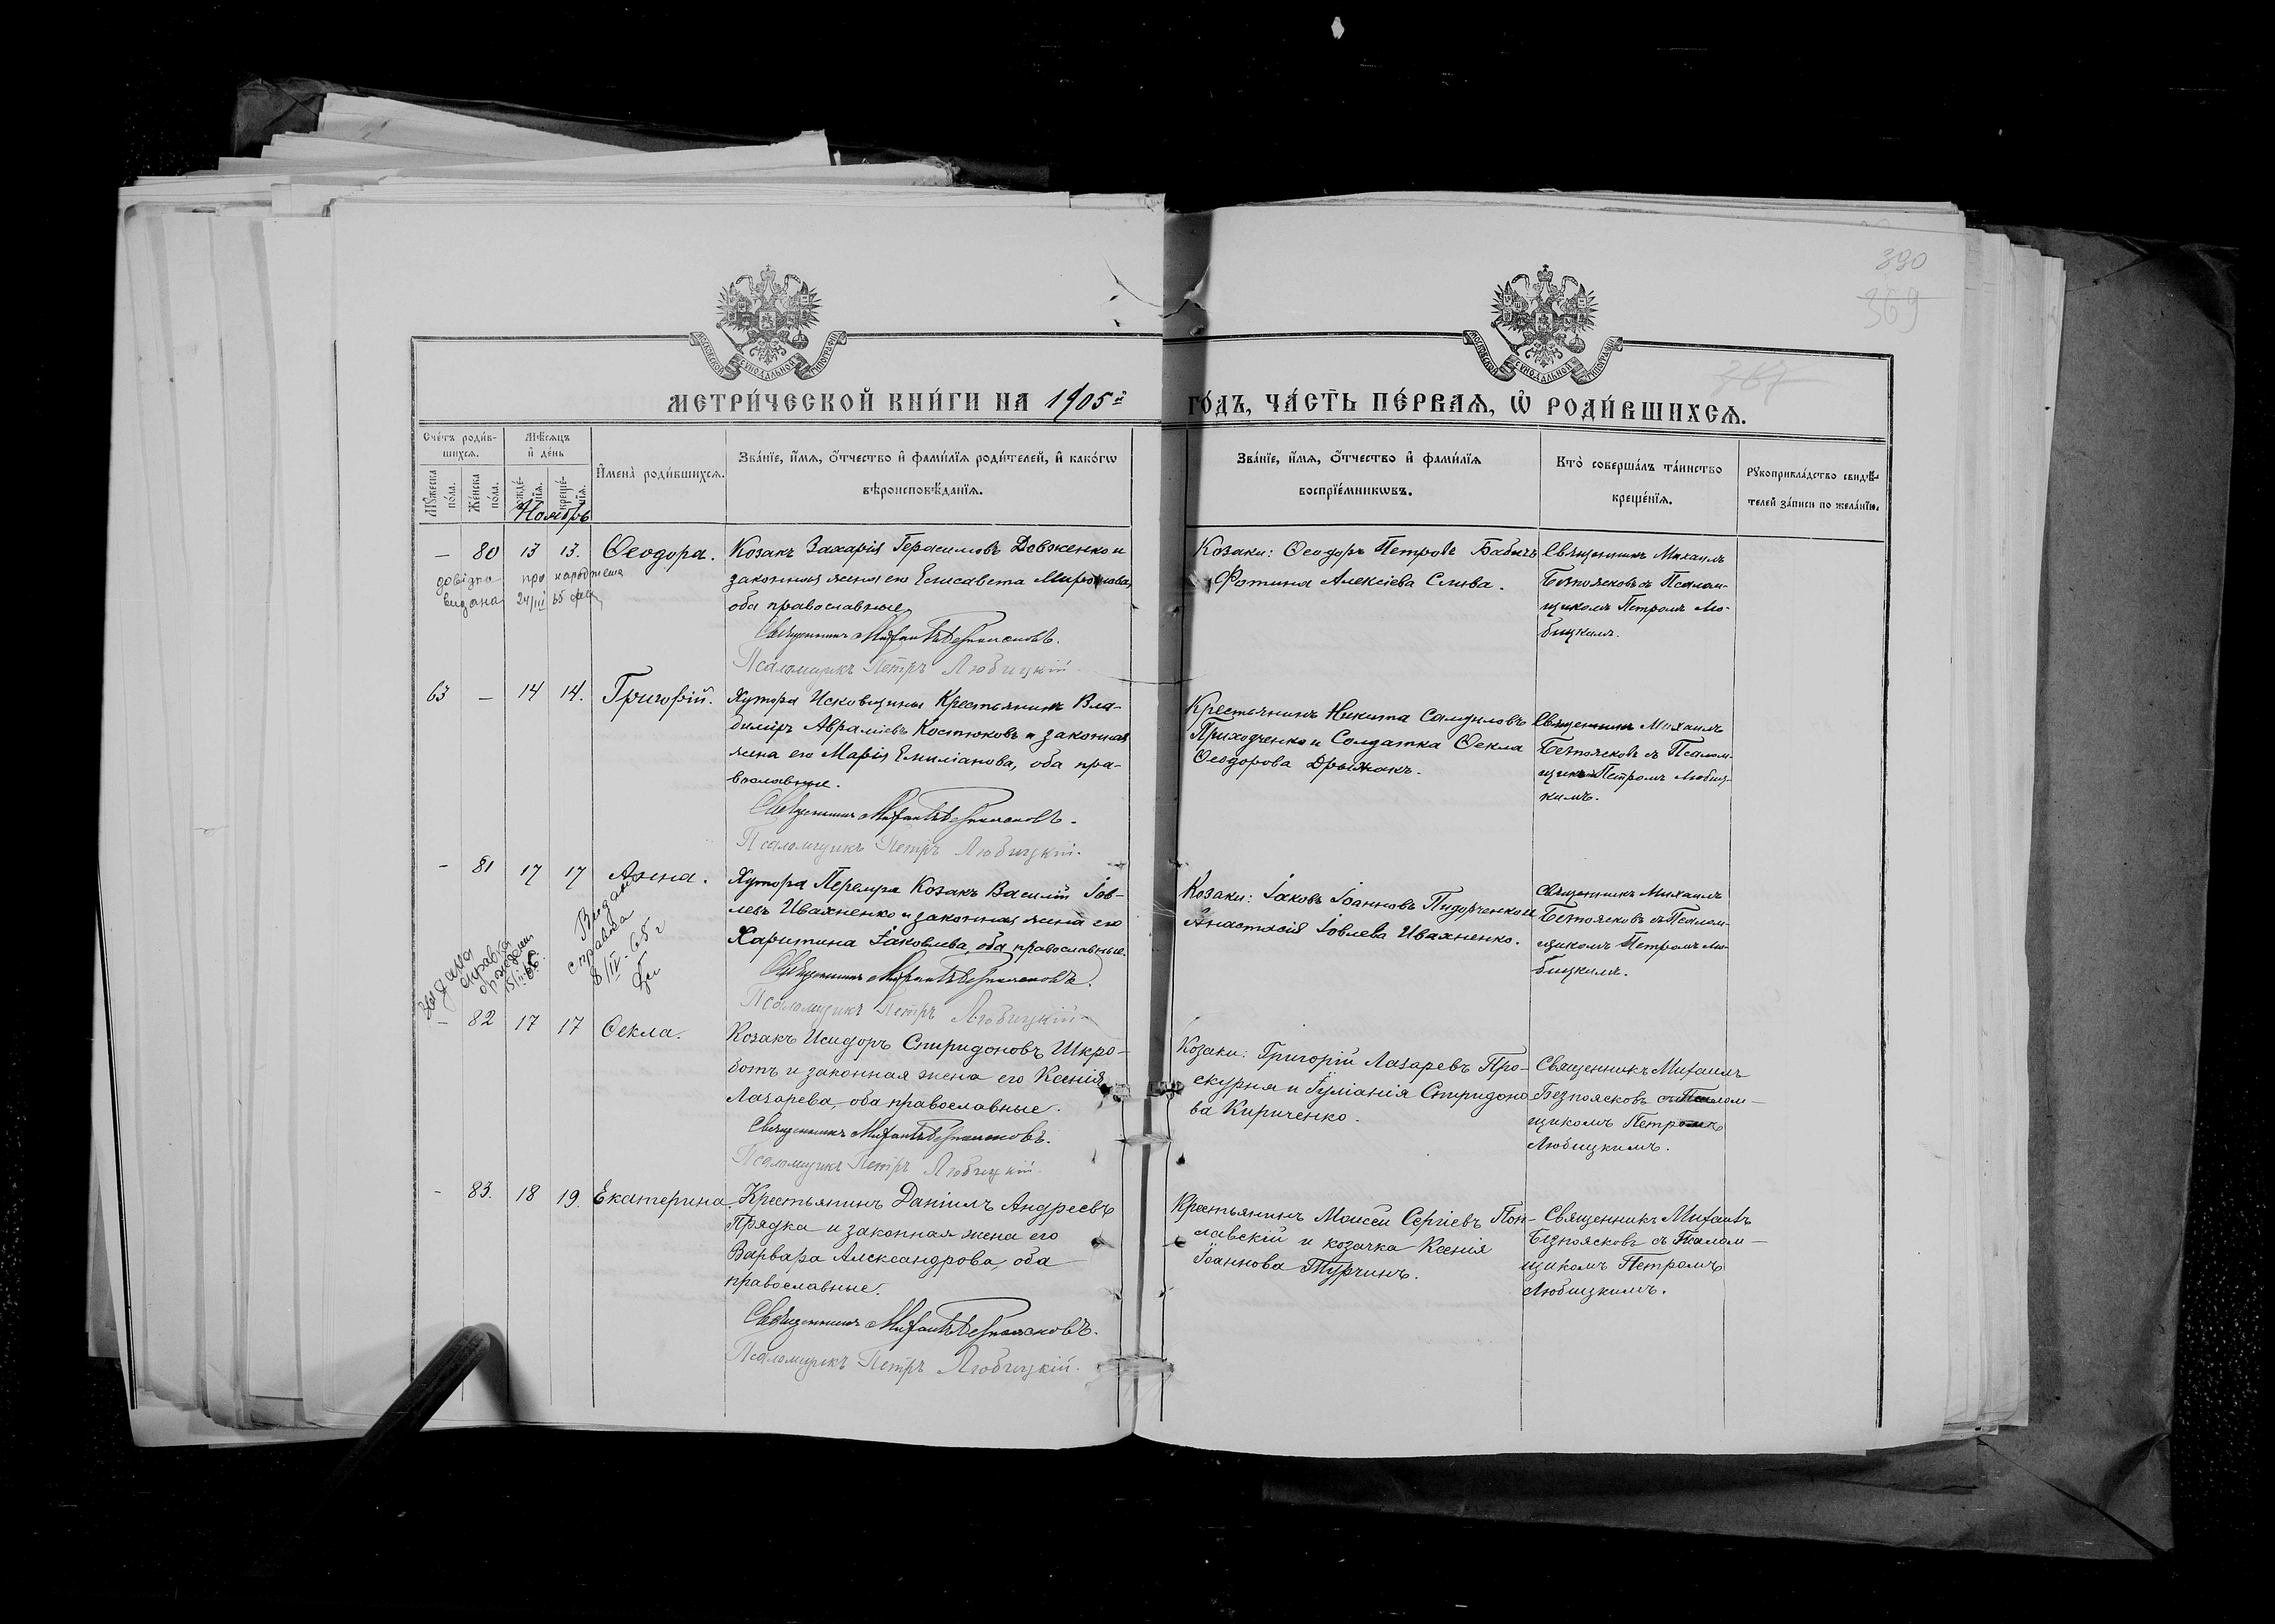 390
369
367
МОСКОВСКОЙ СѴНОДАЛЬНОЙ ТИПОГРАФІИ
МОСКОВСКОЙ СѴНОДАЛЬНОЙ ТИПОГРАФІИ
МЕТРИ́ЧЕСКОЙ КНИ́ГИ НА 1905й ГО́ДЪ, ЧА́СТЬ ПЕ́РВАЯ, Ѡ҆ РОДИ́ВШИХСѦ.
Сче́тъ роди́в-
шихсѧ.
Мꙋ́жеска
по́ла.
Же́нска
по́ла.
Мѣ́сѧцъ
и҆ де́нь
рожде́-
нїѧ.
креще́-
нїѧ.
Ноябрь
И҆мена̀ роди́вшихсѧ.
Зва́нїе, и҆́мѧ, ѻ҆́тчество и҆ фами́лїѧ роди́телей, и҆ како́гѡ
вѣроисповѣ́данїѧ.
Зва́нїе, и҆́мѧ, ѻ҆́тчество и҆ фами́лїѧ
воспрїе́мникѡвъ.
Кто̀ соверша́лъ та́инство
креще́нїѧ.
Рꙋкоприкла́дство свидѣ́-
телей за́писи по жела́нїю.
— 80 13 13. Ѳеодора.
довідка про народження
видана 24/III 65
Козакъ Захарія Герасимовъ Довженко и
законная жена его Елисавета Миронова,
оба православные
Священникъ Михаилъ Безпоясковъ.
Псаломщикъ Петръ Любицкій.
Козаки: Ѳеодоръ Петровъ Бабичъ
Фотина Алексіева Слива.
Священникъ Михаилъ
Безпоясковъ съ Псалом-
щикомъ Петромъ Лю-
бицкимъ.
63 — 14 14. Григорій.
Хутора Исковщины Крестьянинъ Вла-
диміръ Авраміевъ Костюковъ и законная
жена его Марія Емиліанова, оба пра-
вославные.
Священникъ Михаилъ Безпоясковъ.
Псаломщикъ Петръ Любицкій.
Крестьянинъ Никита Самуиловъ
Приходченко и Солдатка Ѳекла
Ѳеодорова Дрыжакъ.
Священникъ Михаилъ
Безпоясковъ съ Псалом-
щикомъ Петромъ Любиц-
кимъ.
— 81 17 17 Анна.
Выдана
справка
о рождении
Видана
справка
8/IV-65 г
Хутора Перелура Козакъ Василій Іов-
левъ Ивахненко и законная жена его
Харитина Іаковлева, оба православные.
Священникъ Михаилъ Безпоясковъ.
Псаломщикъ Петръ Любицкій
Козаки: Іаковъ Іоанновъ Пидорченко и
Анастасія Іовлева Ивахненко.
Священникъ Михаилъ
Безпоясковъ съ Псалом-
щикомъ Петромъ Лю-
бицкимъ.
— 82 17 17 Ѳекла.
Козакъ Исидоръ Спиридоновъ Шкро-
ботъ и законная жена его Ксенія
Лазарева, оба православные.
Священникъ Михаилъ Безпоясковъ.
Псаломщикъ Петръ Любицкій.
Козаки: Григорій Лазаревъ Про-
скурня и Іуліанія Спиридоно
ва Кириченко.
Священникъ Михаилъ
Безпоясковъ съ Псалом-
щикомъ Петромъ
Любицкимъ.
— 83. 18 19. Екатерина.
Крестьянинъ Даніилъ Андреевъ
Прядка и законная жена его
Варвара Александрова, оба
православные.
Священникъ Михаилъ Безпоясковъ.
Псаломщикъ Петръ Любицкій.
Крестьянинъ Моисей Сергіевъ Поп-
лавскій и козачка Ксенія
Іоаннова Турчинъ.
Священникъ Михаилъ
Безпоясковъ съ Псалом-
щикомъ Петромъ
Любицкимъ.